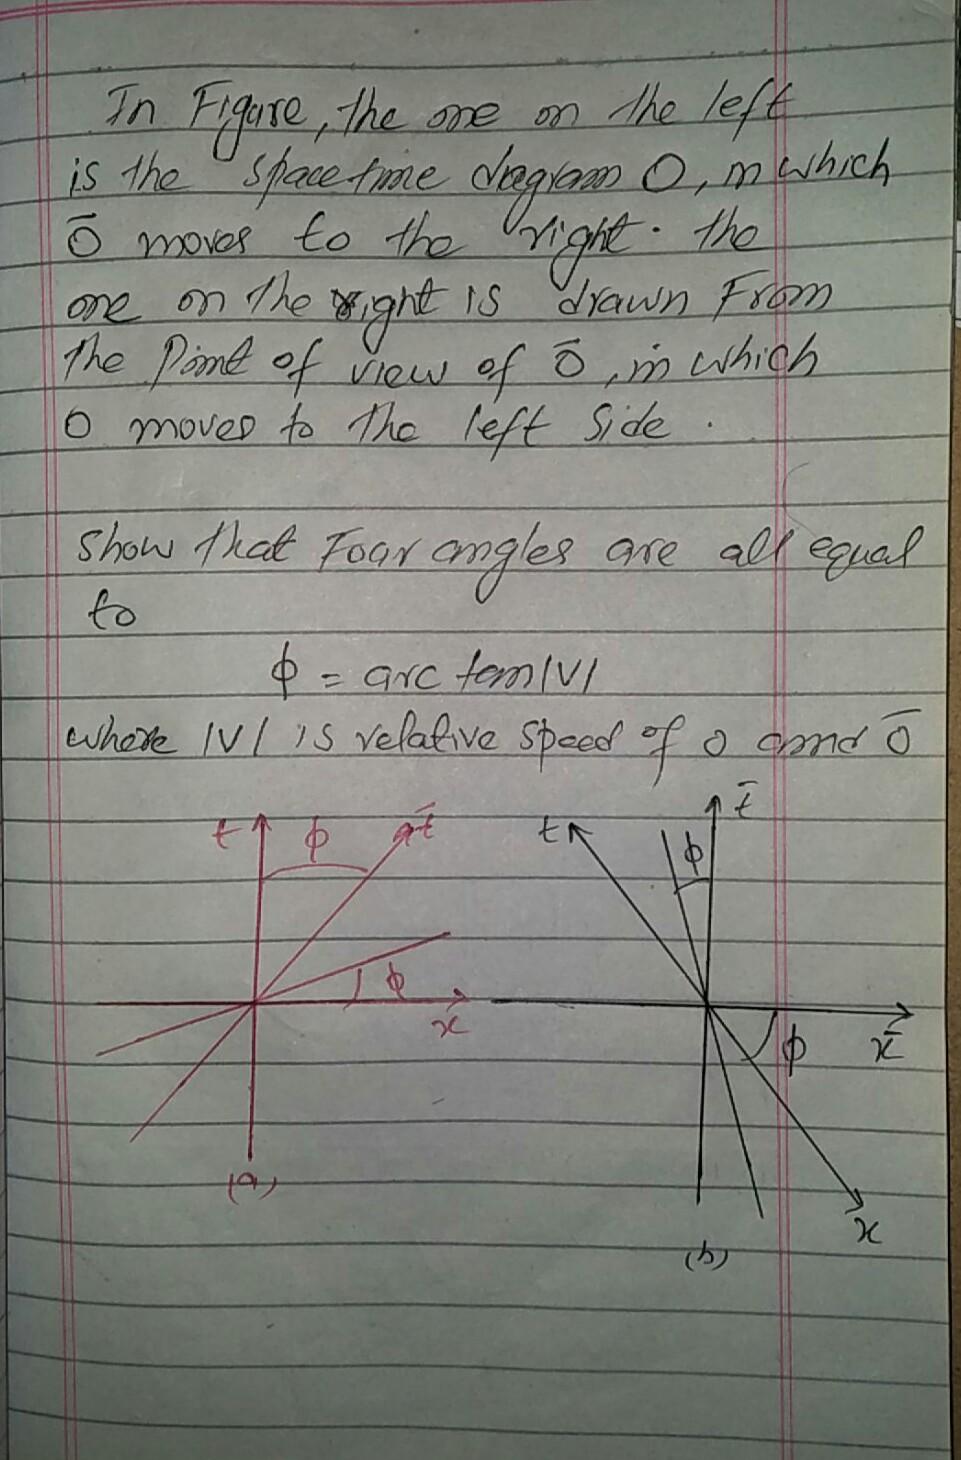 In Figure, the one on the left
is the spacetime diagram O, in which
Ō moves to the right. the
one on the right is drawn From
the Point of view of Ō, in which
O moves to the left side.
show that Four angles are all equal
to
ϕ = arc tan|V|
where |V| is relative speed of O and Ō
t ϕ t̄
ϕ
x
(a)
t t̄
ϕ
ϕ x̄
x
(b)